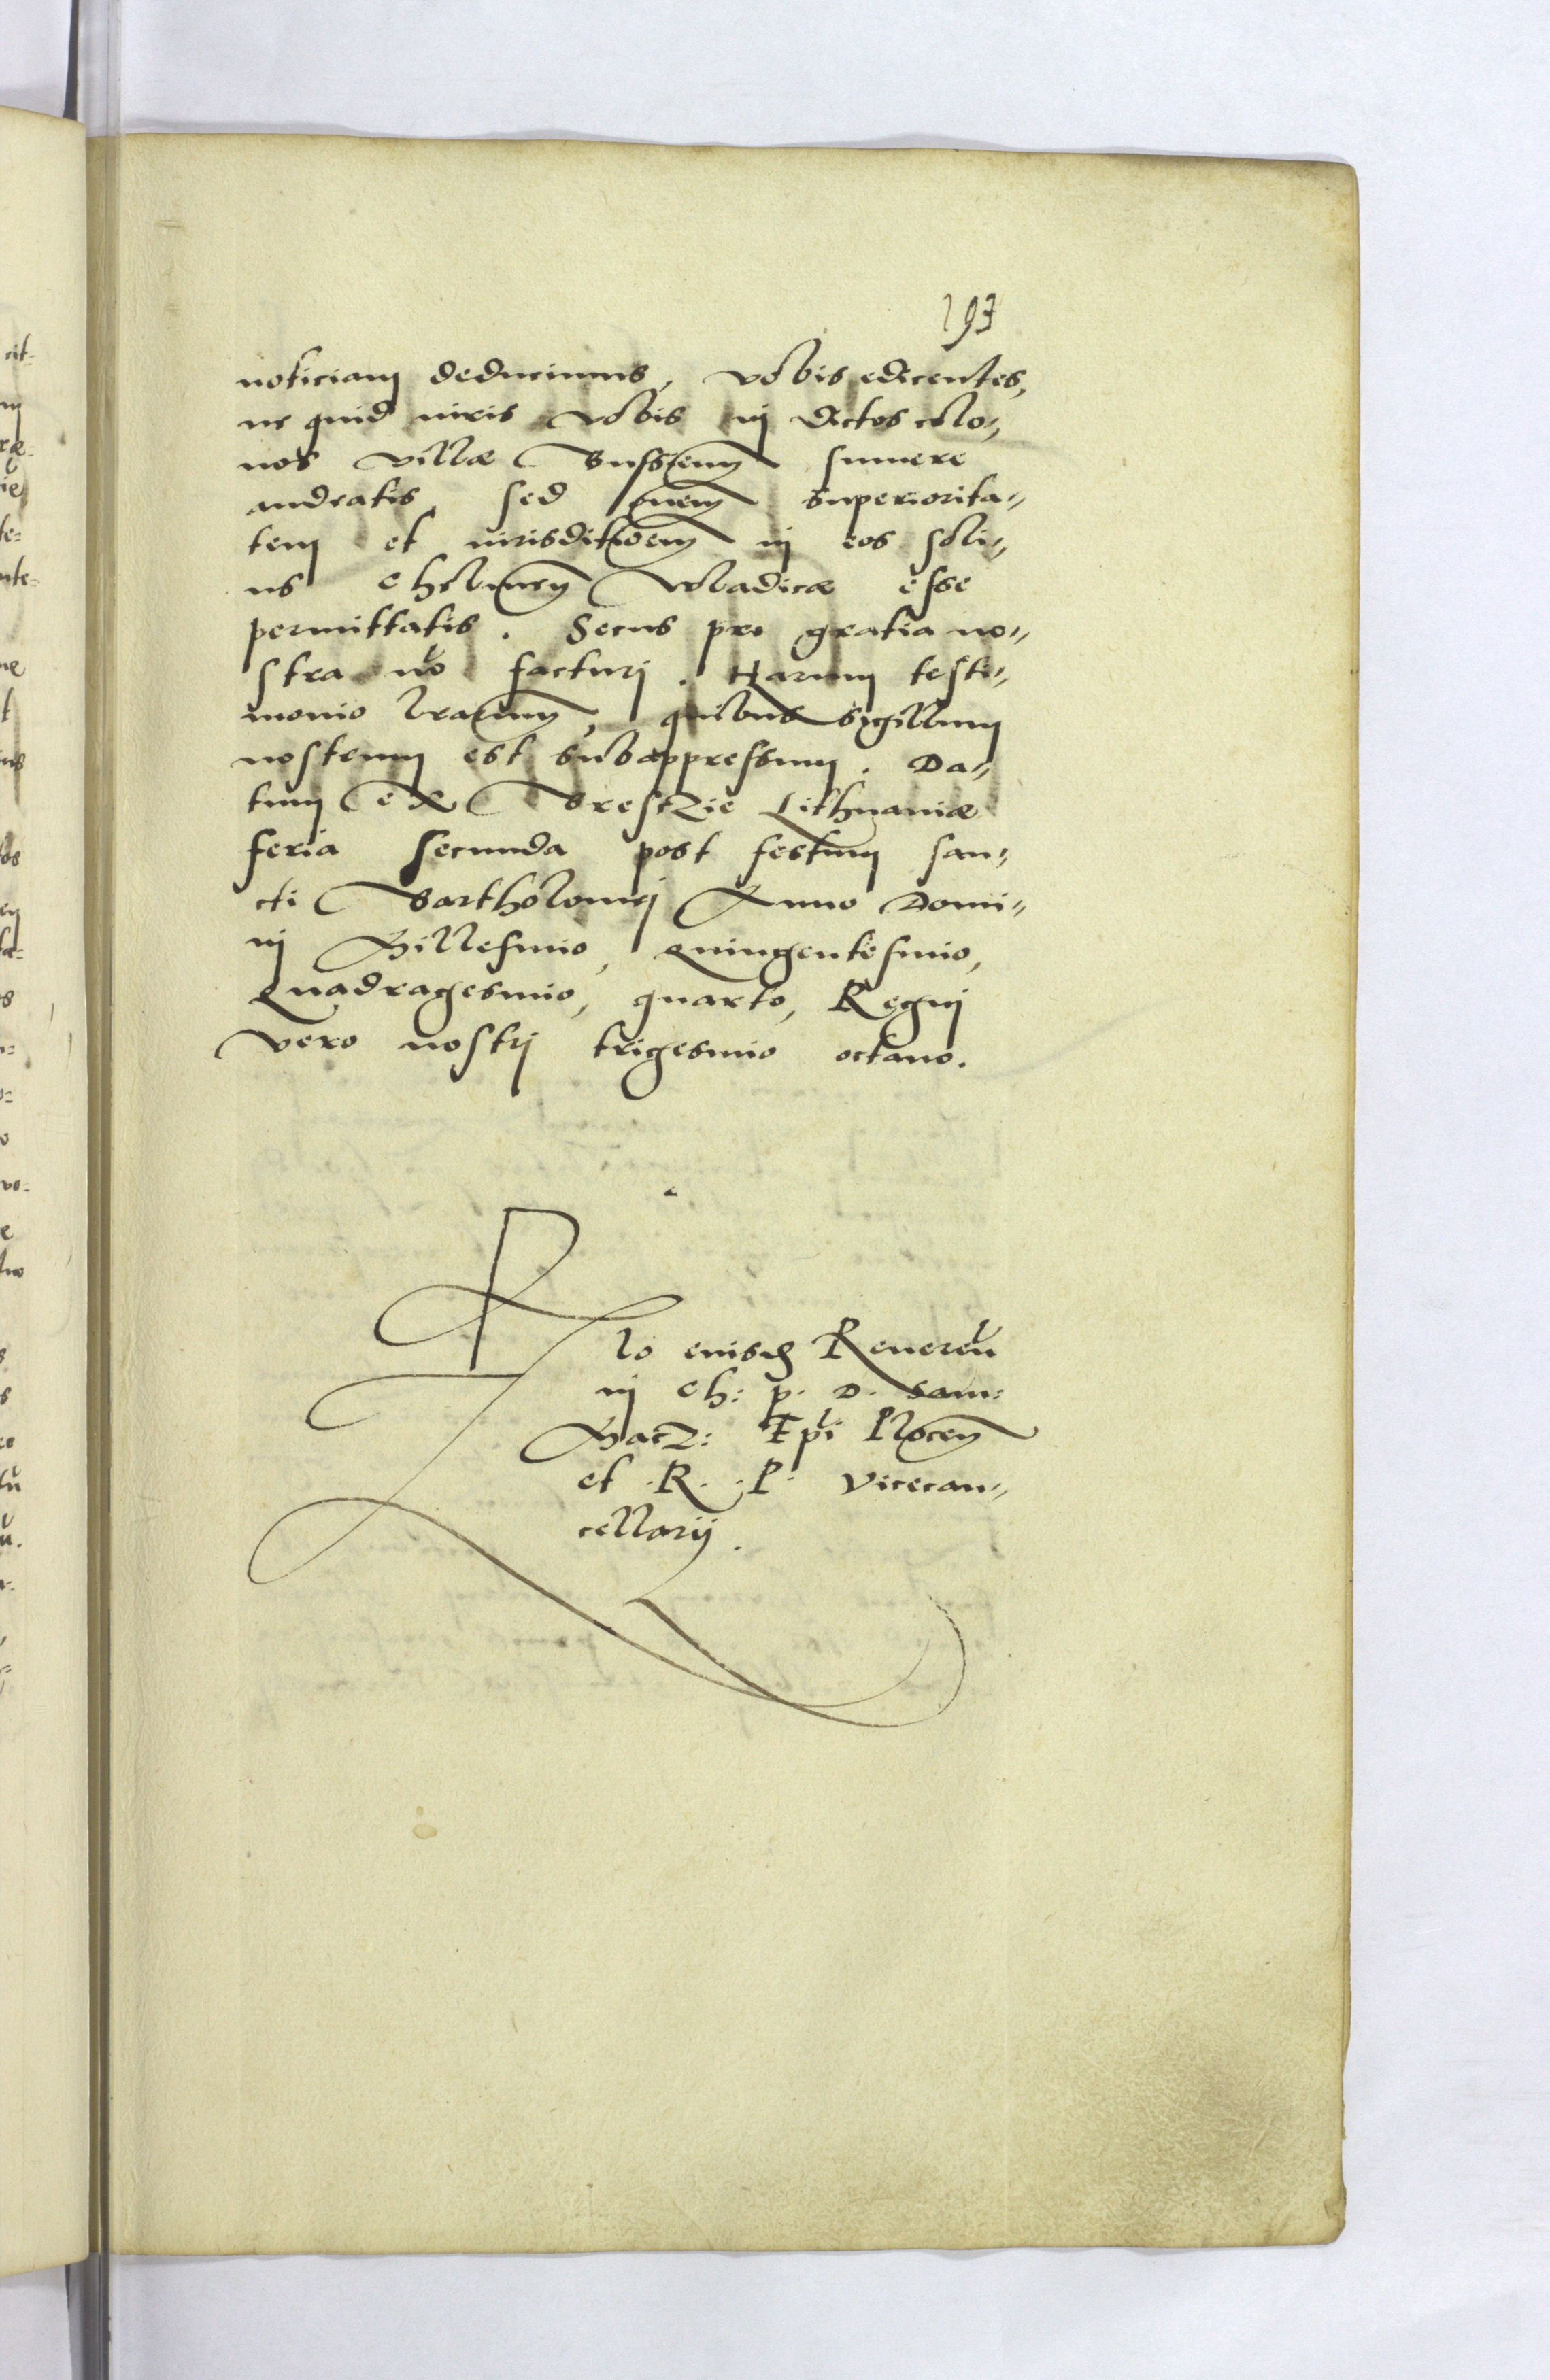 193
noticiam deducimus, vobis edicentes,
ne quid iuris vobis in dictos colo„
nos villæ Bussens sumere
audeatis, sed omnem superiorita„
tem et iurisditioem in eos soli„
us Chelmen Vladicæ esse
permittatis. Secus pro gratia no„
stra nō facturi. Harum testi„
monio lrarum, quibus sigillum
nostrum est subappressum. Da„
tum ex Brestzie Lithuaniæ
feria secunda post festum san„
cti Bartholomei Anno Domi„
ni Millesimo, Quingentesimo,
Quadragesimo, quarto, Regni
vero nostri trigesimo octauo.
Rlo eiusd Reueren
in Ch: p. D. Sam:
Macz: Epi Plocen
et .R. .P. Vicecan„
cellarij.